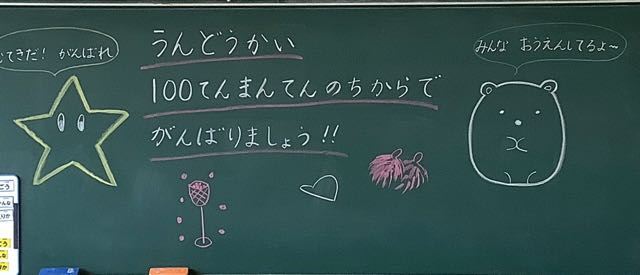 むてきだ！がんばれ
みんな おうえんしてるよ〜
うんどうかい
100てんまんてんのちからで
がんばりましょう!!